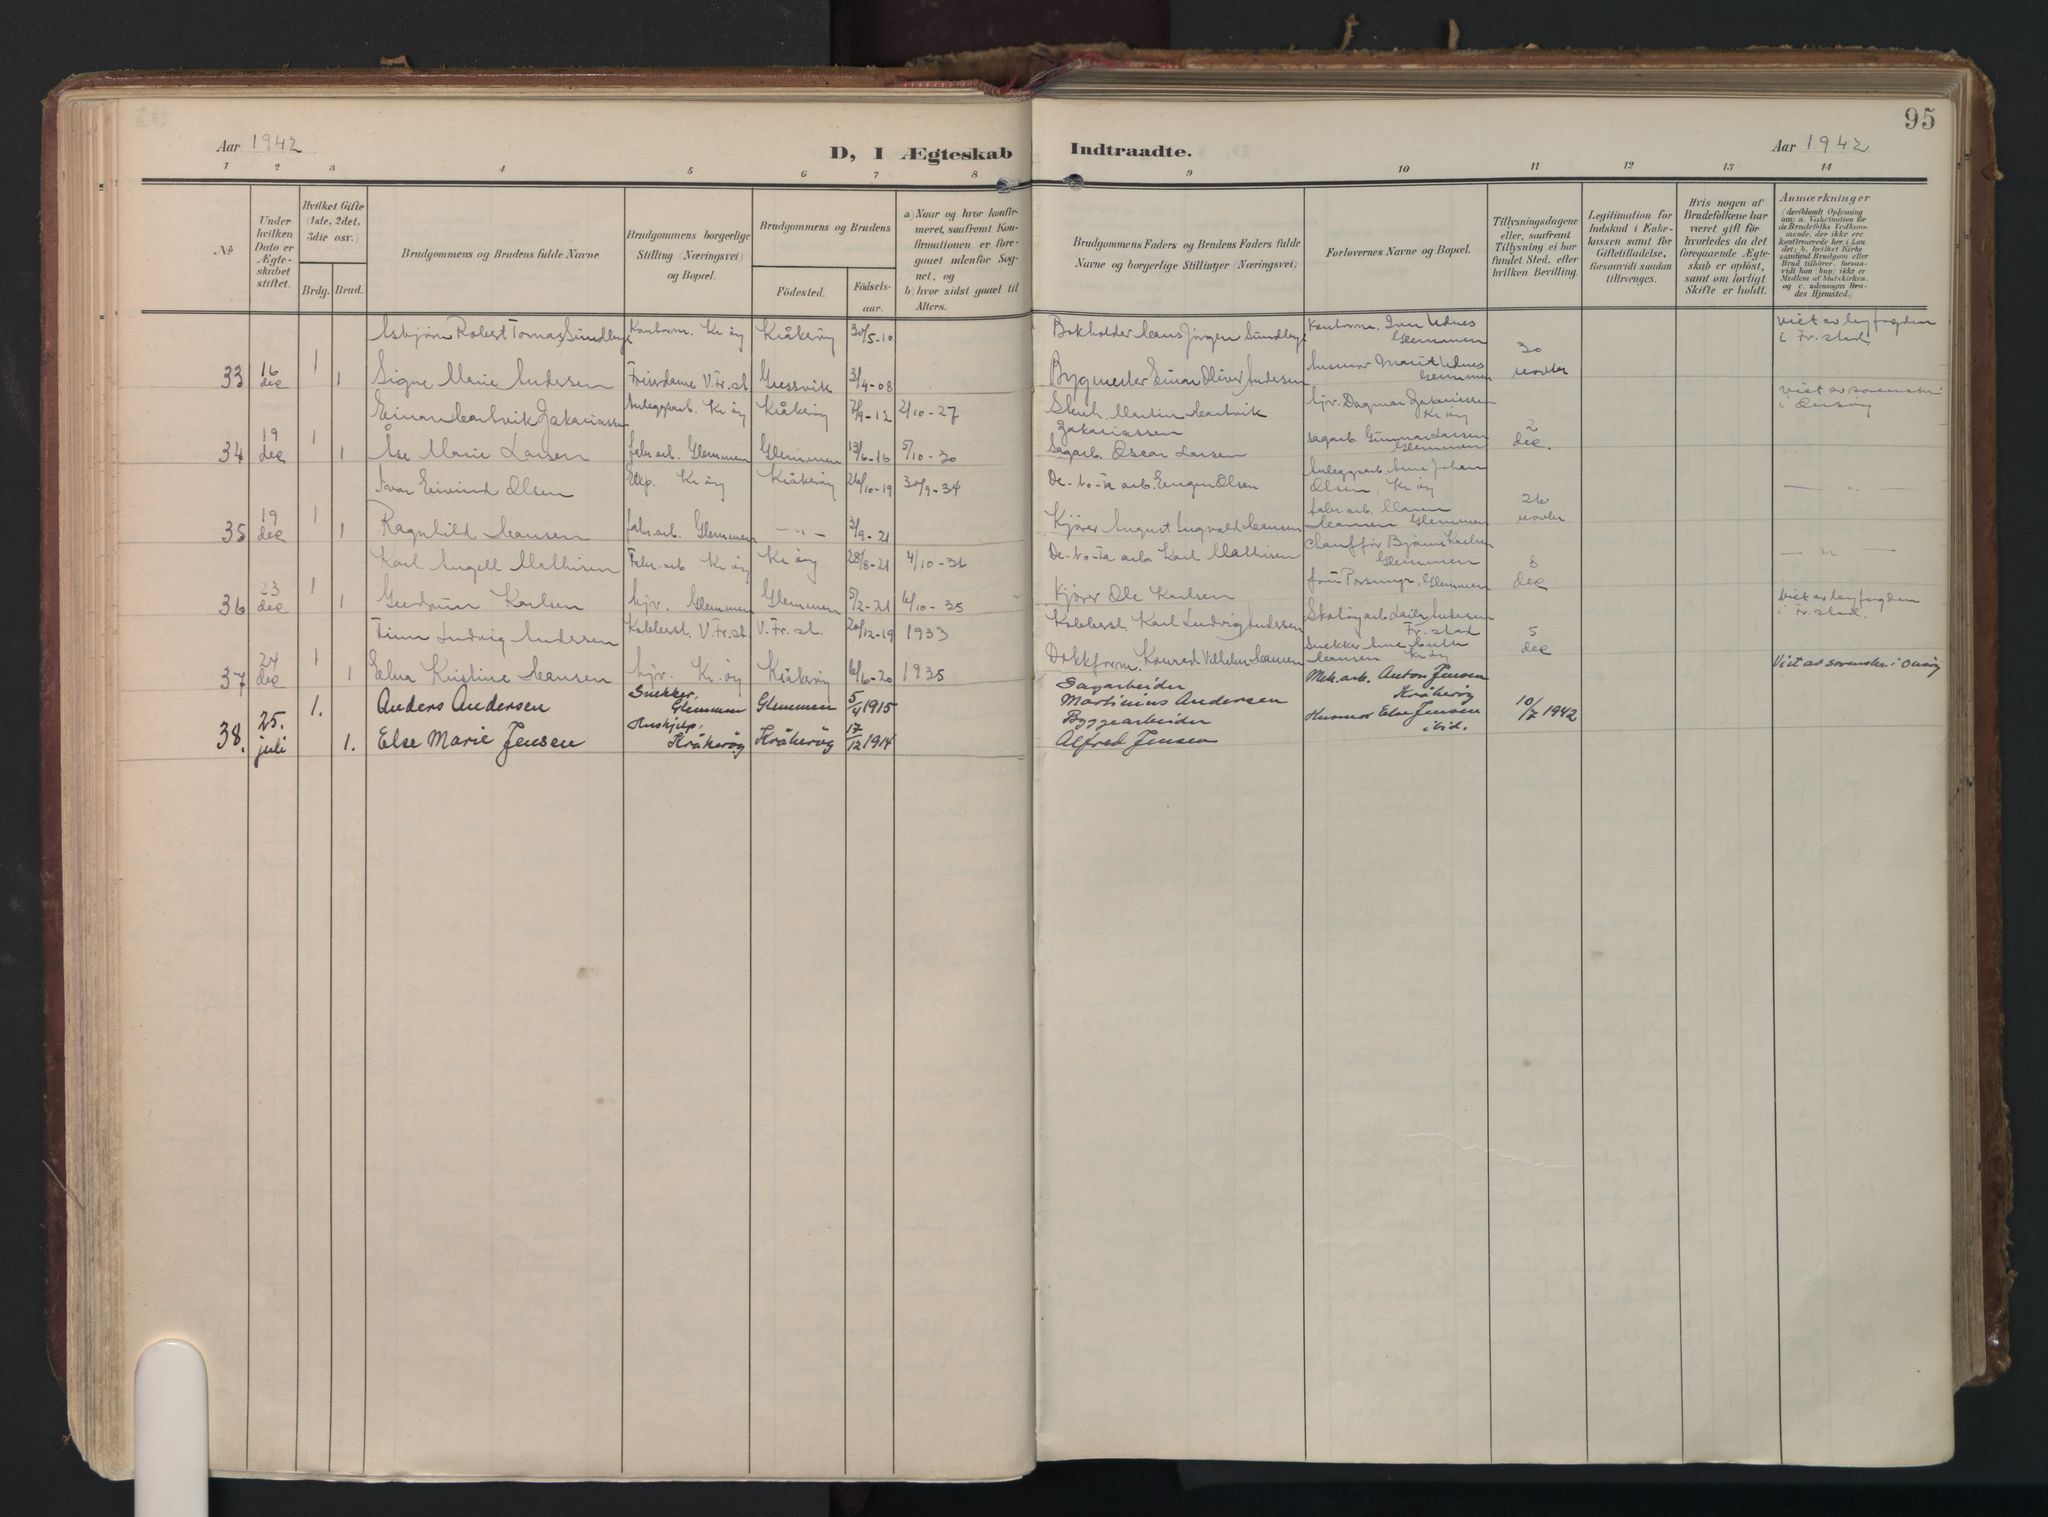 95
Aar 1942
D, I Ægteskab Indtraadte.
Aar 1942
1 2 3 4 5 6 7 8 9 10 11 12 13 14
No
Under hvilken Dato er Ægteskabet stiftet.
Hvilket Gifte (1ste, 2det, 3die osv.)
Brdg. Brud.
Brudgommens og Brudens fulde Navne.
Brudgommens borgerlige Stilling (Næringsvei) og Bopæl.
Brudgommens og Brudens
Fødested. Fødselsaar.
a) Naar og hvor konfirmeret, saafremt Konfirmationen er foregaaet udenfor Sognet, og
b) hvor sidst gaaet til Alters.
Brudgommens Faders og Brudens Faders fulde Navne og borgerlige Stillinger (Næringsvei)
Forlovernes Navne og Bopæl.
Tillysningsdagene eller, saafremt Tillysning ei har fundet Sted, efter hvilken Bevilling.
Legitimation for Indskud i Enkekassen samt for Giftetilladelse, forsaavidt saadan tiltrænges.
Hvis nogen af Brudefolkene har været gift før hvorledes da det foregaaende Ægteskab er opløst, samt om lovligt Skifte er holdt.
Anmærkninger
Asbjørn Robert Tomas Sundberg Kontorm. Kr øy Kråkerøy 30/5-10 Bokholder Hans Jörgen Sundberg Kontorm. Glemmen viet av byfogden i Fr.stad
33 16 dec 1 1 Signe Marie Andersen Frisørdame V. Fr. st. Gressvik 3/4-08 Bygmester Einar Oliver Andersen husmor Marit Udnes Glemmen 30 novbr
Einar Hartvik Jakariassen Anleggsarb. Kr øy Kråkerøy 7/9-12 2/10-27 Martin Hartvik Jakariassen hjv. Dagmar Jakariassen Kr øy viet av sorenskr. i Onsøy
34 19 dec 1 1 Åse Marie Larsen fabr.arb. Glemmen Glemmen 13/6-16 5/10-30 Sagarb. Oscar Larsen sagarb. Gunnar Larsen Glemmen 2 dec.
Ivar Eivind Olsen Eksp. Kr øy Kråkerøy 26/10-19 30/9-34 De-no-fa arb. Eugen Olsen Anleggsarb. Arne Johan Olsen, Kr øy — „ —
35 19 dec 1 1 Ragnhild Hansen fabr.arb. Glemmen — „ — 3/9-21 Kjører August Ingvald Hansen fabr.arb. Hansen Glemmen 26 novbr
Karl Angell Mathisen Fabr.arb Kr øy Kr øy 28/8-21 4/10-36 De-no-fa arb Karl Mathisen Chaufför Bjarne Karlsen Glemmen — „ —
36 23 dec 1 1 Gudrun Karlsen hjv. Glemmen Glemmen 5/2-21 6/10-35 Kjører Ole Karlsen Glemmen 8 dec
Finn Ludvig Andersen Kobberst. V. Fr. st V. Fr. st. 20/12-19 1933 Kobberst. Karl Ludvig Andersen Skotøyarb. Andersen Fr. stad viet av byfogden i Fr. stad.
37 24 dec 1 1 Elna Kristine Hansen hjv. Kr. øy Kråkerøy 6/6-20 1935 Dokkform. Konrad Vilhelm Hansen Snekker Hansen Kr øy 5 dec
Anders Andersen Snekker, Glemmen Glemmen 5/4 1915 Sagarbeider Martinius Andersen Mek. arb. Anton Jensen Kråkerøy Viet av sorenskr. i Onsøy
38. 25. juli 1. 1. Else Marie Jensen Hushjelp. Kråkerøy Kråkerøy 17/12 1914 Byggearbeider Alfred Jensen Husmor Else Jensen ibid. 10/7 1942